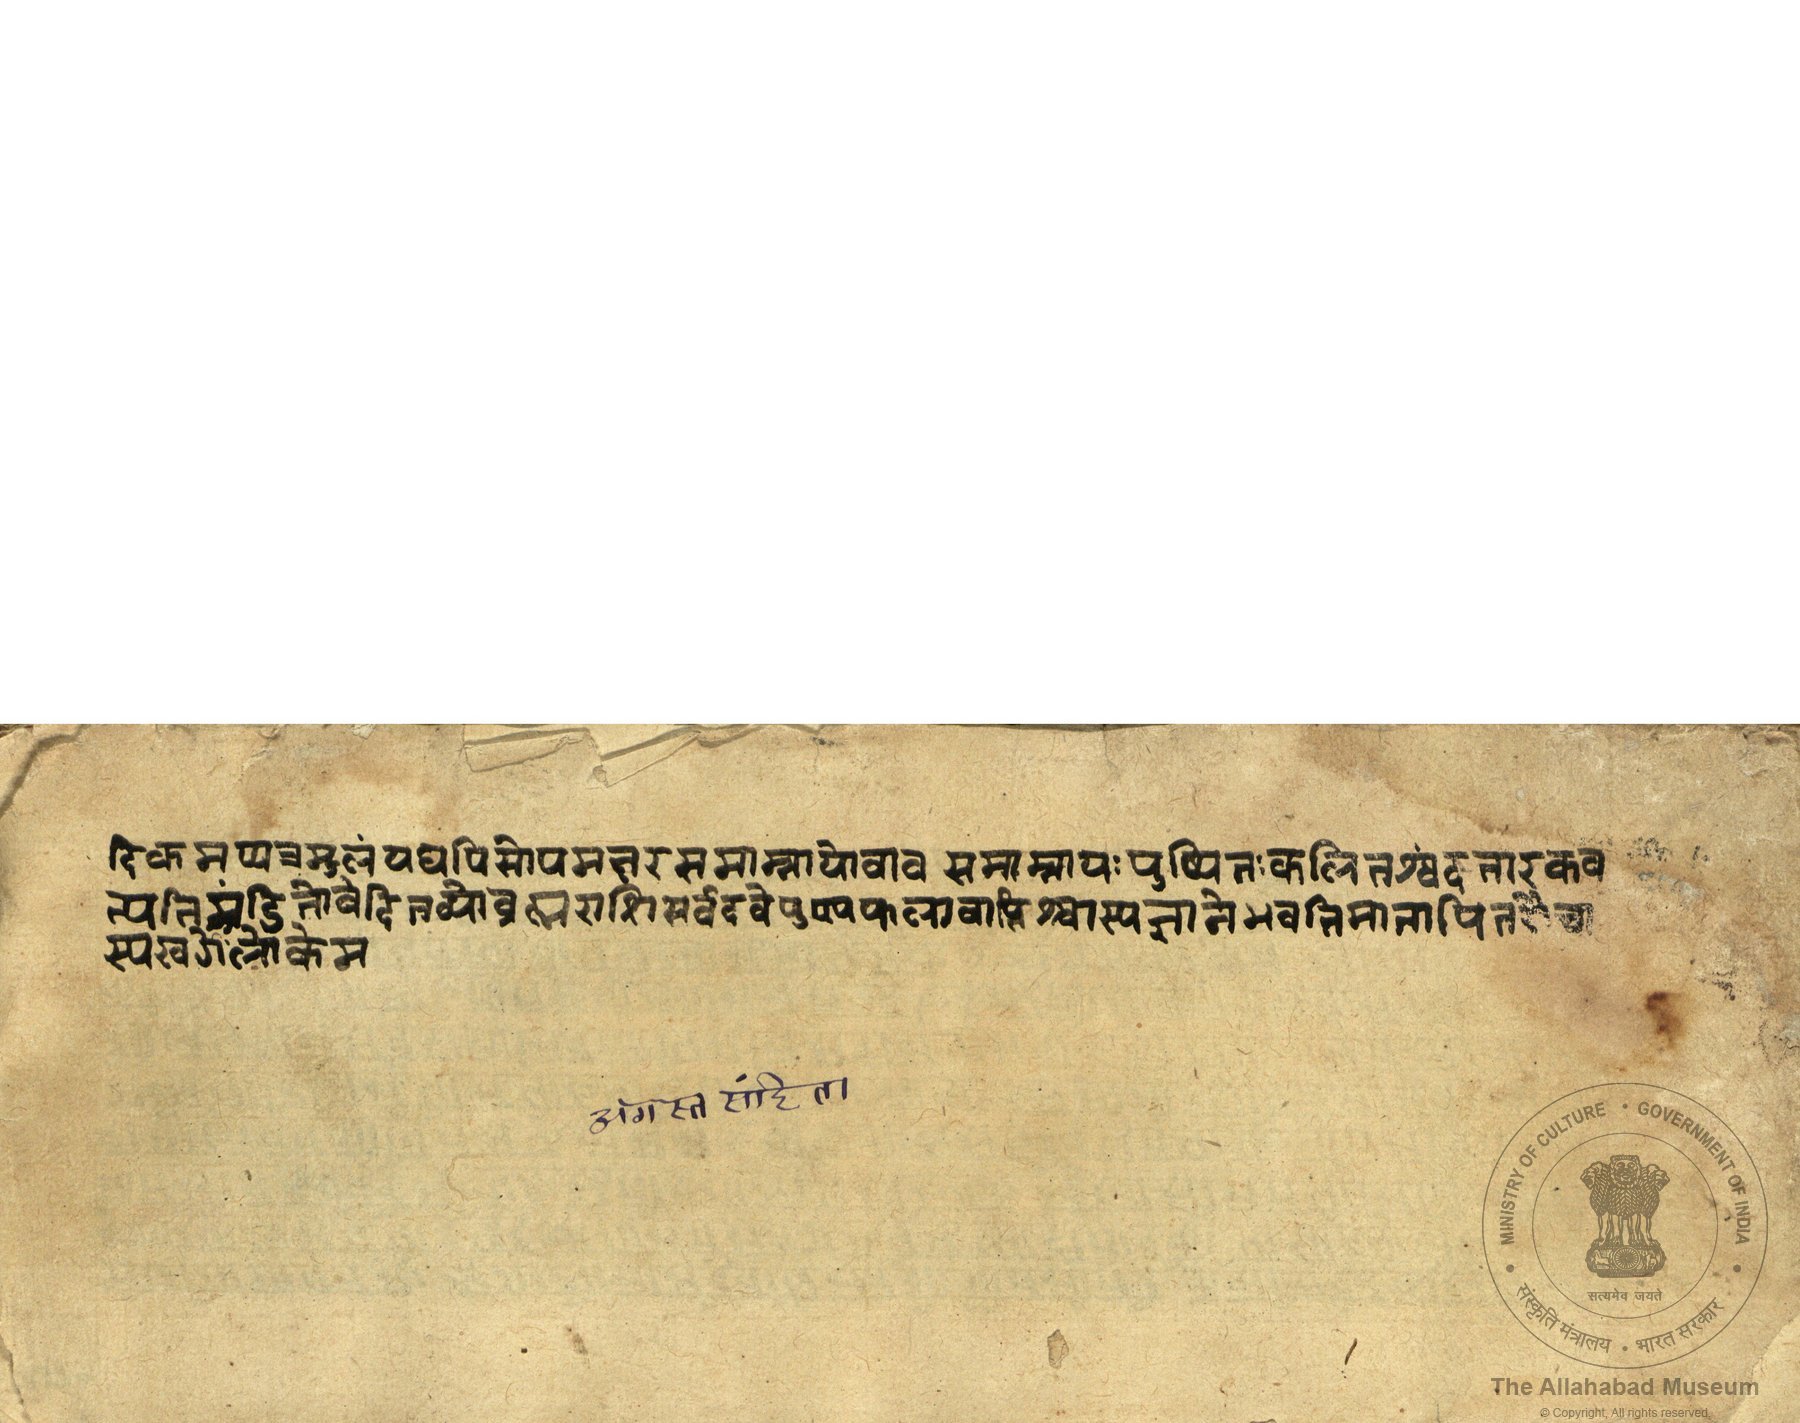 दिकमप्यन्नमुलंपद्यपिसोपमत्तरसमाम्नायोवाव समाम्नापः पुष्पितः कलितश्चंदतारकव
त्पतिमंडितोवेदितव्योब्रह्मराशिसर्ववेदवेपुण्पफलावाप्तिश्चास्पज्ञानेभवन्तिमातापित
स्पखर्गेलोकेम
अंगस्त संहिता
MINISTRY OF CULTURE • GOVERNMENT OF INDIA
सत्यमेव जयते
संस्कृति मंत्रालय • भारत सरकार
The Allahabad Museum
© Copyright, All rights reserved.